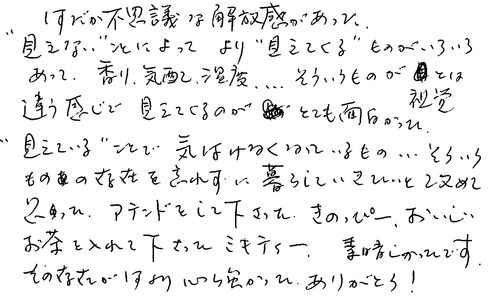 何だか不思議な解放感があった。
"見えない"ことによって より"見えてくる"ものがいろいろ
あって、香り、気配、湿度、... そういうものが 視覚とは
違う感じで 見えてくるのが とても面白かった。
"見えている"ことで 気付けなくなっているもの... そういう
ものの存在を忘れずに暮らしていきたいと改めて
思った。アテンドをして下さった きのっぴー、おいしい
お茶を入れて下さった ミキティー、素晴しかったです。
その存在が何より心強かった。ありがとう!